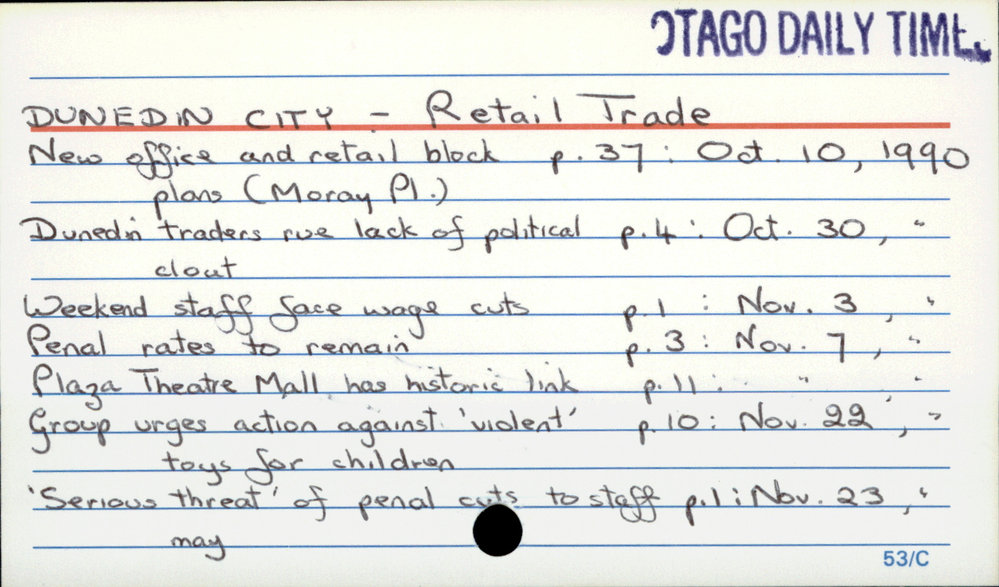 OTAGO DAILY TIMES
DUNEDIN CITY - Retail Trade
New office and retail block p. 37 : Oct. 10, 1990
plans (Moray Pl.)
Dunedin traders rue lack of political p. 4 : Oct. 30, "
clout
Weekend staff face wage cuts p. 1 : Nov. 3, "
Penal rates to remain p. 3 : Nov. 7, "
Plaza Theatre Mall has historic link p. 11 : " "
Group urges action against 'violent' p. 10 : Nov. 22, "
toys for children
'Serious threat' of penal cuts to staff p. 1 : Nov. 23, "
may
53/C